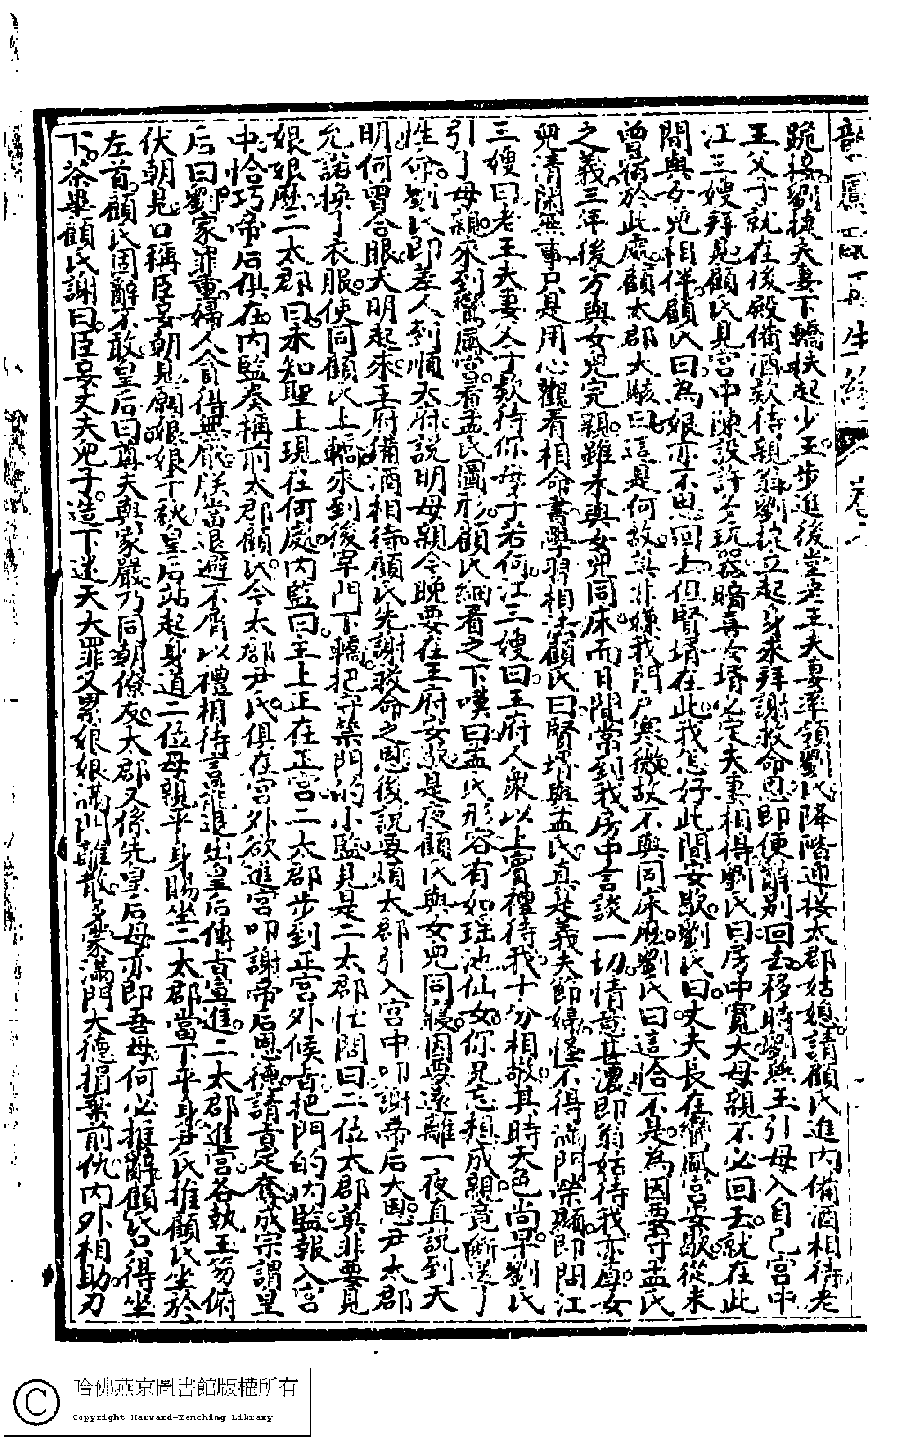 跪接劉捷夫妻下轎扶起少王步進後堂老王夫妻率領劉氏降階迎接太郡姑媳請顧氏進內備酒相待老
王父子就在後殿備酒欵待親翁劉捷立起身來拜謝救命恩即便辭別回去移時劉燕玉引母入自己宮中
江三嫂拜見顧氏見宮中陳設許多玩器暗喜令壻必定夫妻相得劉氏曰房中寬大母親不必回去就在此
間與女兒相伴顧氏曰為娘亦不思回去但賢壻在此我怎好此間安歇劉氏曰丈夫長在鸞鳳宮安歇從未
曾宿於此處顧太郡大駭曰這是何故莫非嫌我門戶寒微故不與同床麼劉氏曰這恰不是為因要守孟氏
之義三年後方與女兒完親雖未與女兒同床而日間常到我房中言談一切情意甚濃即翁姑待我亦真女
兒清閑無事只是用心觀看相命書學習相法顧氏曰賢壻與孟氏真是義夫節婦怪不得滿門榮顯即問江
三嫂曰老王夫妻今寸欵待你母子若何江三嫂曰王府人衆以上賓禮待我十分相敬其時天色尚早劉氏
引了母親來到鸞鳳宮看孟氏圖形顧氏細看之下嘆曰孟氏形容有如瑤池仙女你兄忘想成親竟斷送了
性命劉氏即差人到順天府說明母親今晚要在王府安歇是夜顧氏與女兒同寢因要遠離一夜直說到天
明何曾合眼天明起來王府備酒相待顧氏先謝救命之恩後說要煩太郡引入宮中叩謝帝后大恩尹太郡
允諾換了衣服使同顧氏上轎來到後宰門下轎把守禁門的小監見是二太郡忙問曰二位太郡莫非要見
娘娘麼二太郡曰未知聖上現在何處內監曰主上正在正宮二太郡步到正宮外候旨把門的內監報入宮
中恰巧帝后俱在內監奏稱前太郡顧氏今太郡尹氏俱在宮外欲進宮叩謝帝后恩德請旨定奪成宗謂皇
后曰劉家罪重婦人貪借無厭朕當退避不屑以禮相待言罷退出皇后傳旨宣進二太郡進宮各執玉笏俯
伏朝見口稱臣妾朝見願娘娘千秋皇后站起身道二位母親平身賜坐二太郡當下平身尹氏推顧氏坐於
左首顧氏固辭不敢皇后曰尊夫與家嚴乃同朝僚友太郡又係先皇后母亦即吾母何必推辭顧氏只得坐
下茶畢顧氏謝曰臣妾丈夫兒子造下迷天大罪又累娘娘滿門離散多蒙滿門大德捐棄前仇內外相助刀
哈佛燕京圖書館版權所有
Copyright Harvard-Yenching Library